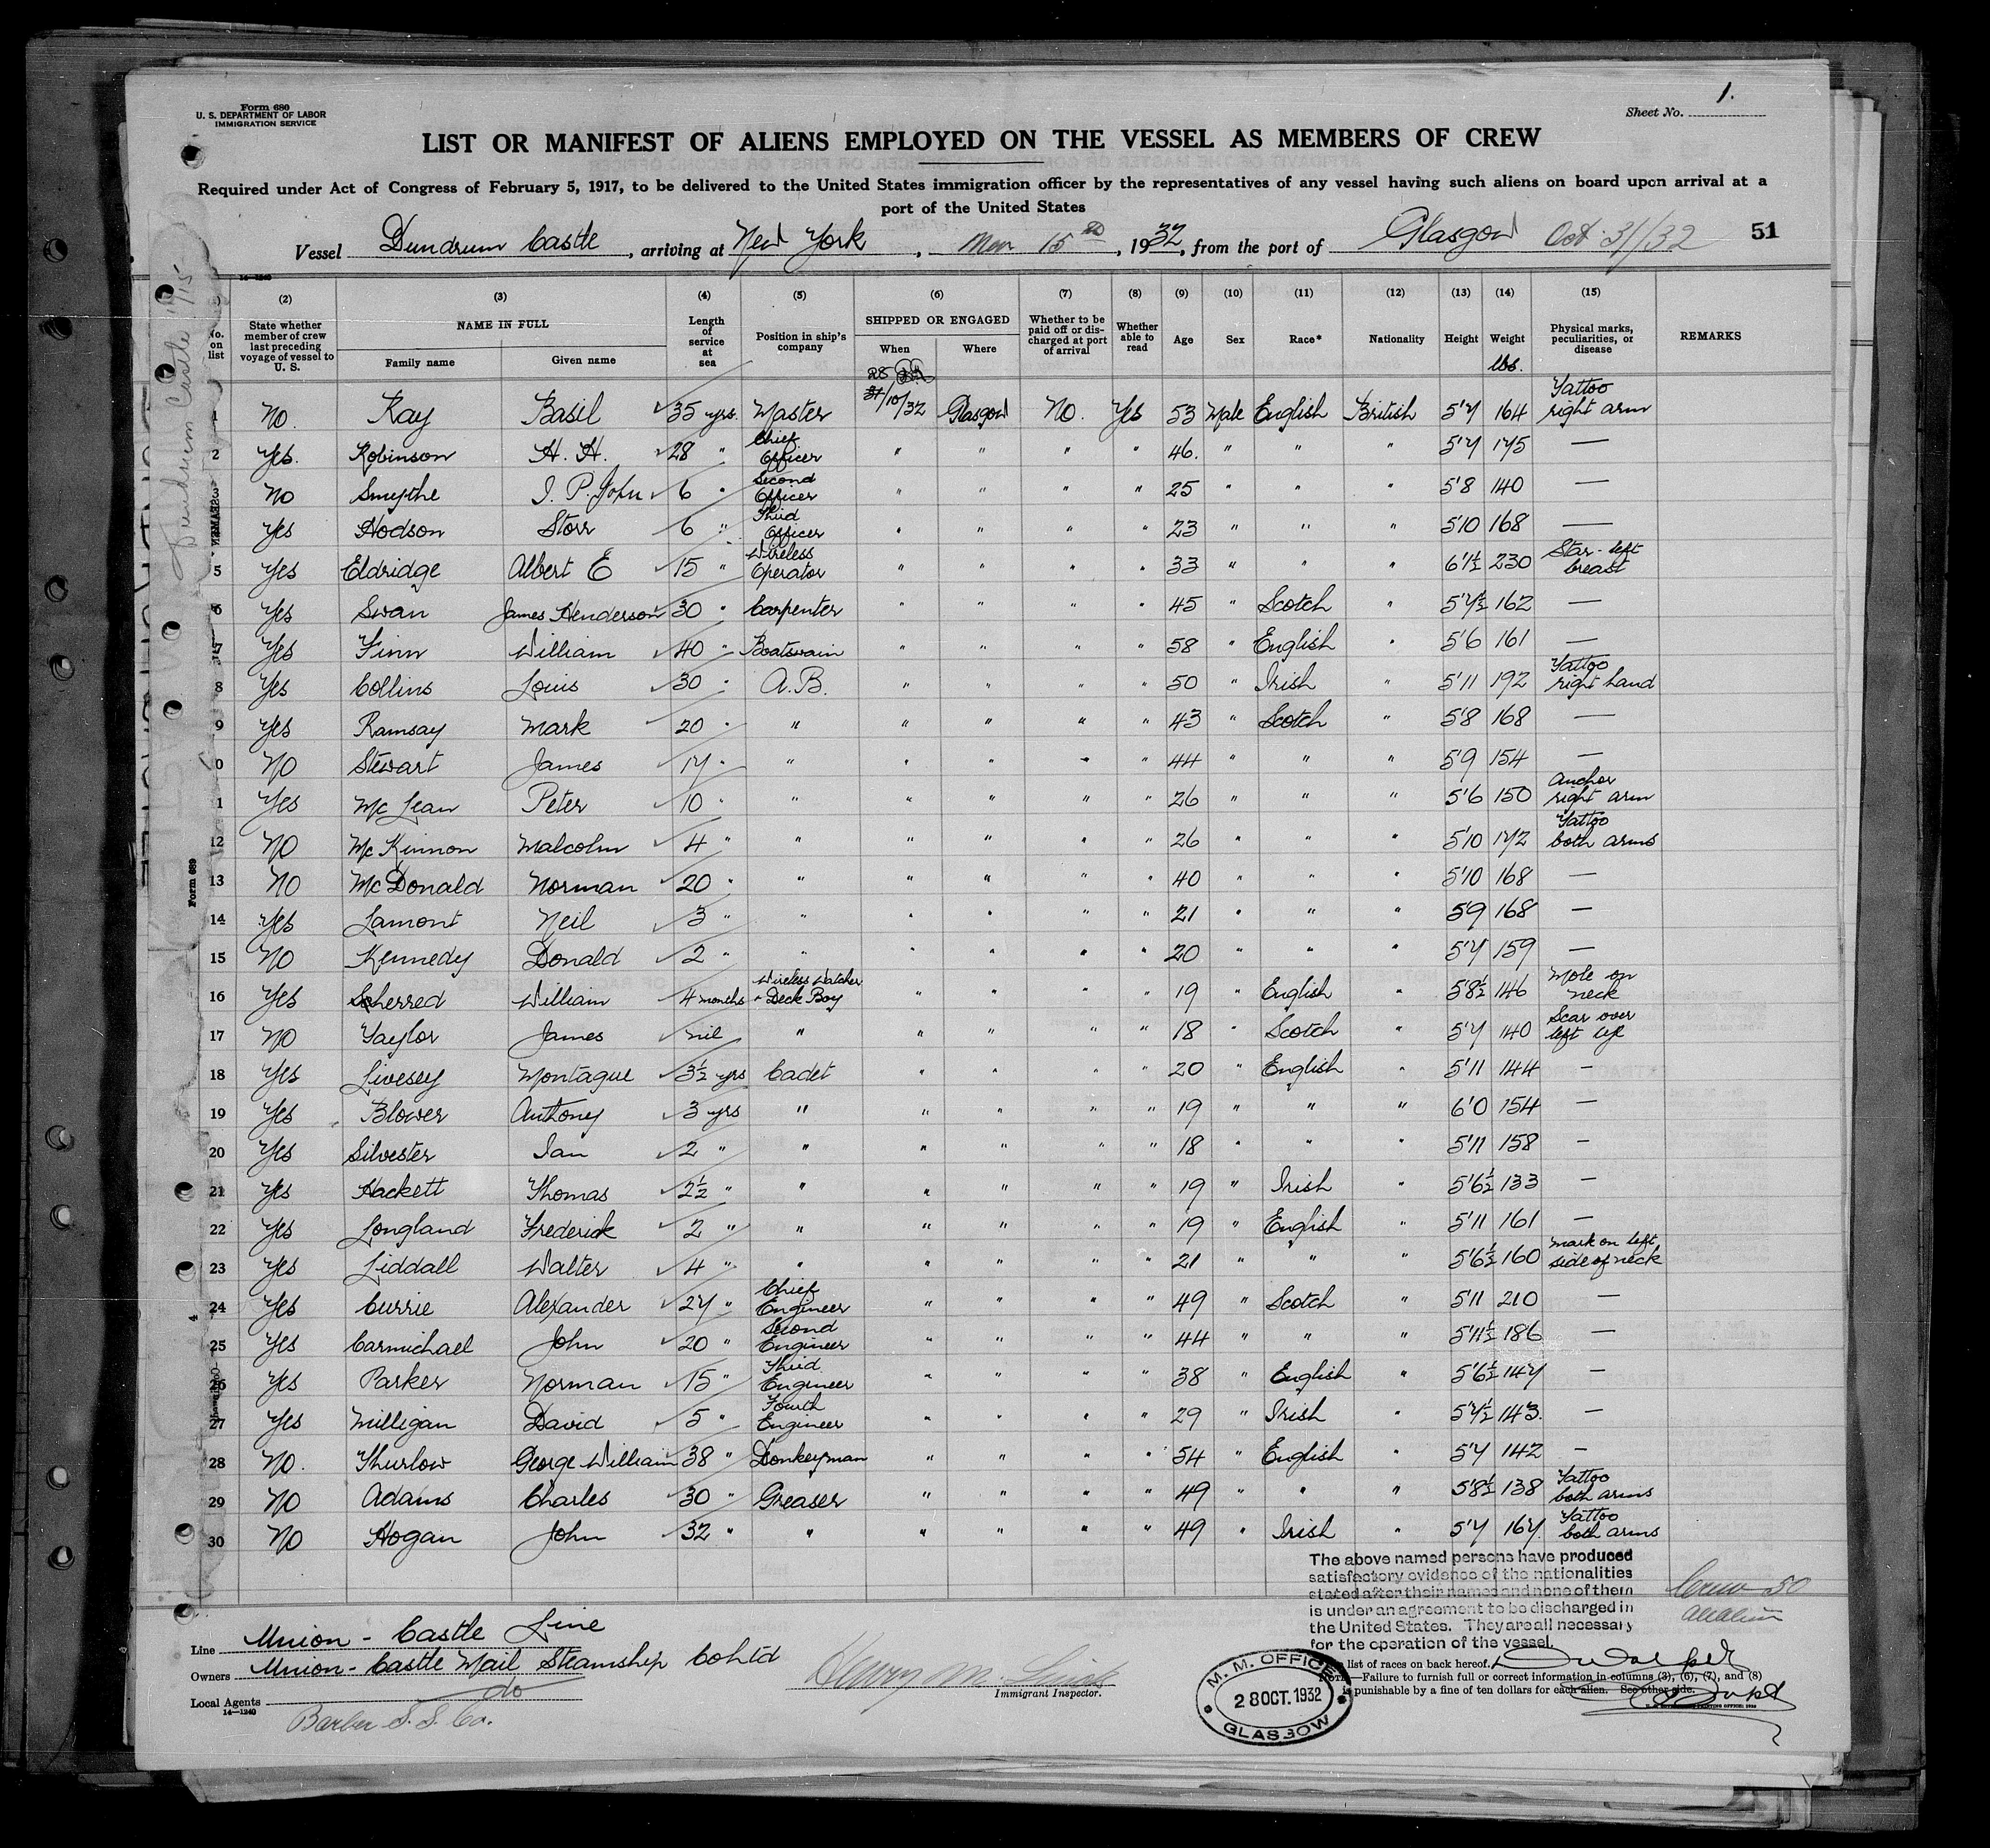 Form 680
U. S. DEPARTMENT OF LABOR
IMMIGRATION SERVICE
Sheet No. 1.
LIST OR MANIFEST OF ALIENS EMPLOYED ON THE VESSEL AS MEMBERS OF CREW
Required under Act of Congress of February 5, 1917, to be delivered to the United States immigration officer by the representatives of any vessel having such aliens on board upon arrival at a
port of the United States
Vessel Dundrum Castle, arriving at New York, Nov 15, 1932, from the port of Glasgow Oct 31/32 51
14—1240
(2) (3) (4) (5) (6) (7) (8) (9) (10) (11) (12) (13) (14) (15)
No. on list State whether member of crew last preceding voyage of vessel to U. S. NAME IN FULL Family name Given name Length of service at sea Position in ship's company SHIPPED OR ENGAGED When Where Whether to be paid off or discharged at port of arrival Whether able to read Age Sex Race* Nationality Height Weight lbs. Physical marks, peculiarities, or disease REMARKS
1 No. Kay Basil 35 yrs. Master 28 31/10/32 Glasgow No. Yes 53 Male English British 5'7 164 Tattoo right arm
2 Yes. Robinson H. H. 28 " Chief Officer " " " " 46. " " " 5'7 175 —
3 No Smythe J. P. John 6 " Second Officer " " " " 25 " " " 5'8 140 —
Yes Hodson Storr 6 " Third Officer " " " " 23 " " " 5'10 168 —
5 Yes Eldridge Albert E 15 " Wireless Operator " " " " 33 " " " 6'1½ 230 Star - left breast
6 Yes Swan James Henderson 30 " Carpenter " " " " 45 " Scotch " 5'7½ 162 —
7 Yes Finn William 40 " Boatswain " " " " 58 " English " 5'6 161 —
8 Yes Collins Louis 30 " A.B. " " " " 50 " Irish " 5'11 192 Tattoo right hand
9 Yes Ramsay Mark 20 " " " " " " 43 " Scotch " 5'8 168 —
0 No Stewart James 17 " " " " " " 44 " " " 5'9 154 —
1 Yes McLean Peter 10 " " " " " " 26 " " " 5'6 150 Anchor right arm
12 No McKinnon Malcolm 4 " " " " " " 26 " " " 5'10 172 Tattoo both arms
13 No McDonald Norman 20 " " " " " " 40 " " " 5'10 168 —
14 Yes Lamont Neil 3 " " " " " " 21 " " " 5'9 168 —
15 No Kennedy Donald 2 " " " " " " 20 " " " 5'7 159 —
16 Yes Scherred William 4 months Wireless Watcher + Deck Boy " " " " 19 " English " 5'8½ 146 Mole on neck
17 No Taylor James nil " " " " " 18 " Scotch " 5'7 140 Scar over left eye
18 Yes Livesey Montague 3½ yrs Cadet " " " " 20 " English " 5'11 144 —
19 Yes Blower Anthony 3 yrs " " " " " 19 " " " 6'0 154 —
20 Yes Silvester Ian 2 " " " " " " 18 " " " 5'11 158 —
21 Yes Hackett Thomas 2½ " " " " " " 19 " Irish " 5'6½ 133 —
22 Yes Longland Frederick 2 " " " " " " 19 " English " 5'11 161 —
23 Yes Liddall Walter 4 " " " " " " 21 " " " 5'6½ 160 Mark on left side of neck
24 Yes Currie Alexander 27 " Chief Engineer " " " " 49 " Scotch " 5'11 210 —
25 Yes Carmichael John 20 " Second Engineer " " " " 44 " " " 5'11½ 186 —
26 Yes Parker Norman 15 " Third Engineer " " " " 38 " English " 5'6½ 147 —
27 Yes Milligan David 5 " Fourth Engineer " " " " 29 " Irish " 5'7½ 143. —
28 No. Thurlow George William 38 " Donkeyman " " " " 54 " English " 5'7 142 —
29 No Adams Charles 30 " Greaser " " " " 49 " " " 5'8½ 138 Tattoo both arms
30 No Hogan John 32 " " " " " " 49 " Irish " 5'7 167 Tattoo both arms
The above named persons have produced
satisfactory evidence of the nationalities
stated after their names and none of them
is under an agreement to be discharged in
the United States. They are all necessary
for the operation of the vessel.
Crew 50
Line Union - Castle Line
Owners Union - Castle Mail Steamship Co Ltd
Local Agents do
14—1240
Barber S. S. Co.
Henry M.
Immigrant Inspector.
M. M. OFFICE
28 OCT. 1932
GLASGOW
list of races on back hereof.
NOTE.—Failure to furnish full or correct information in columns (3), (6), (7), and (8)
is punishable by a fine of ten dollars for each alien. See other side.
Form 689
Dundrum Castle 11/15